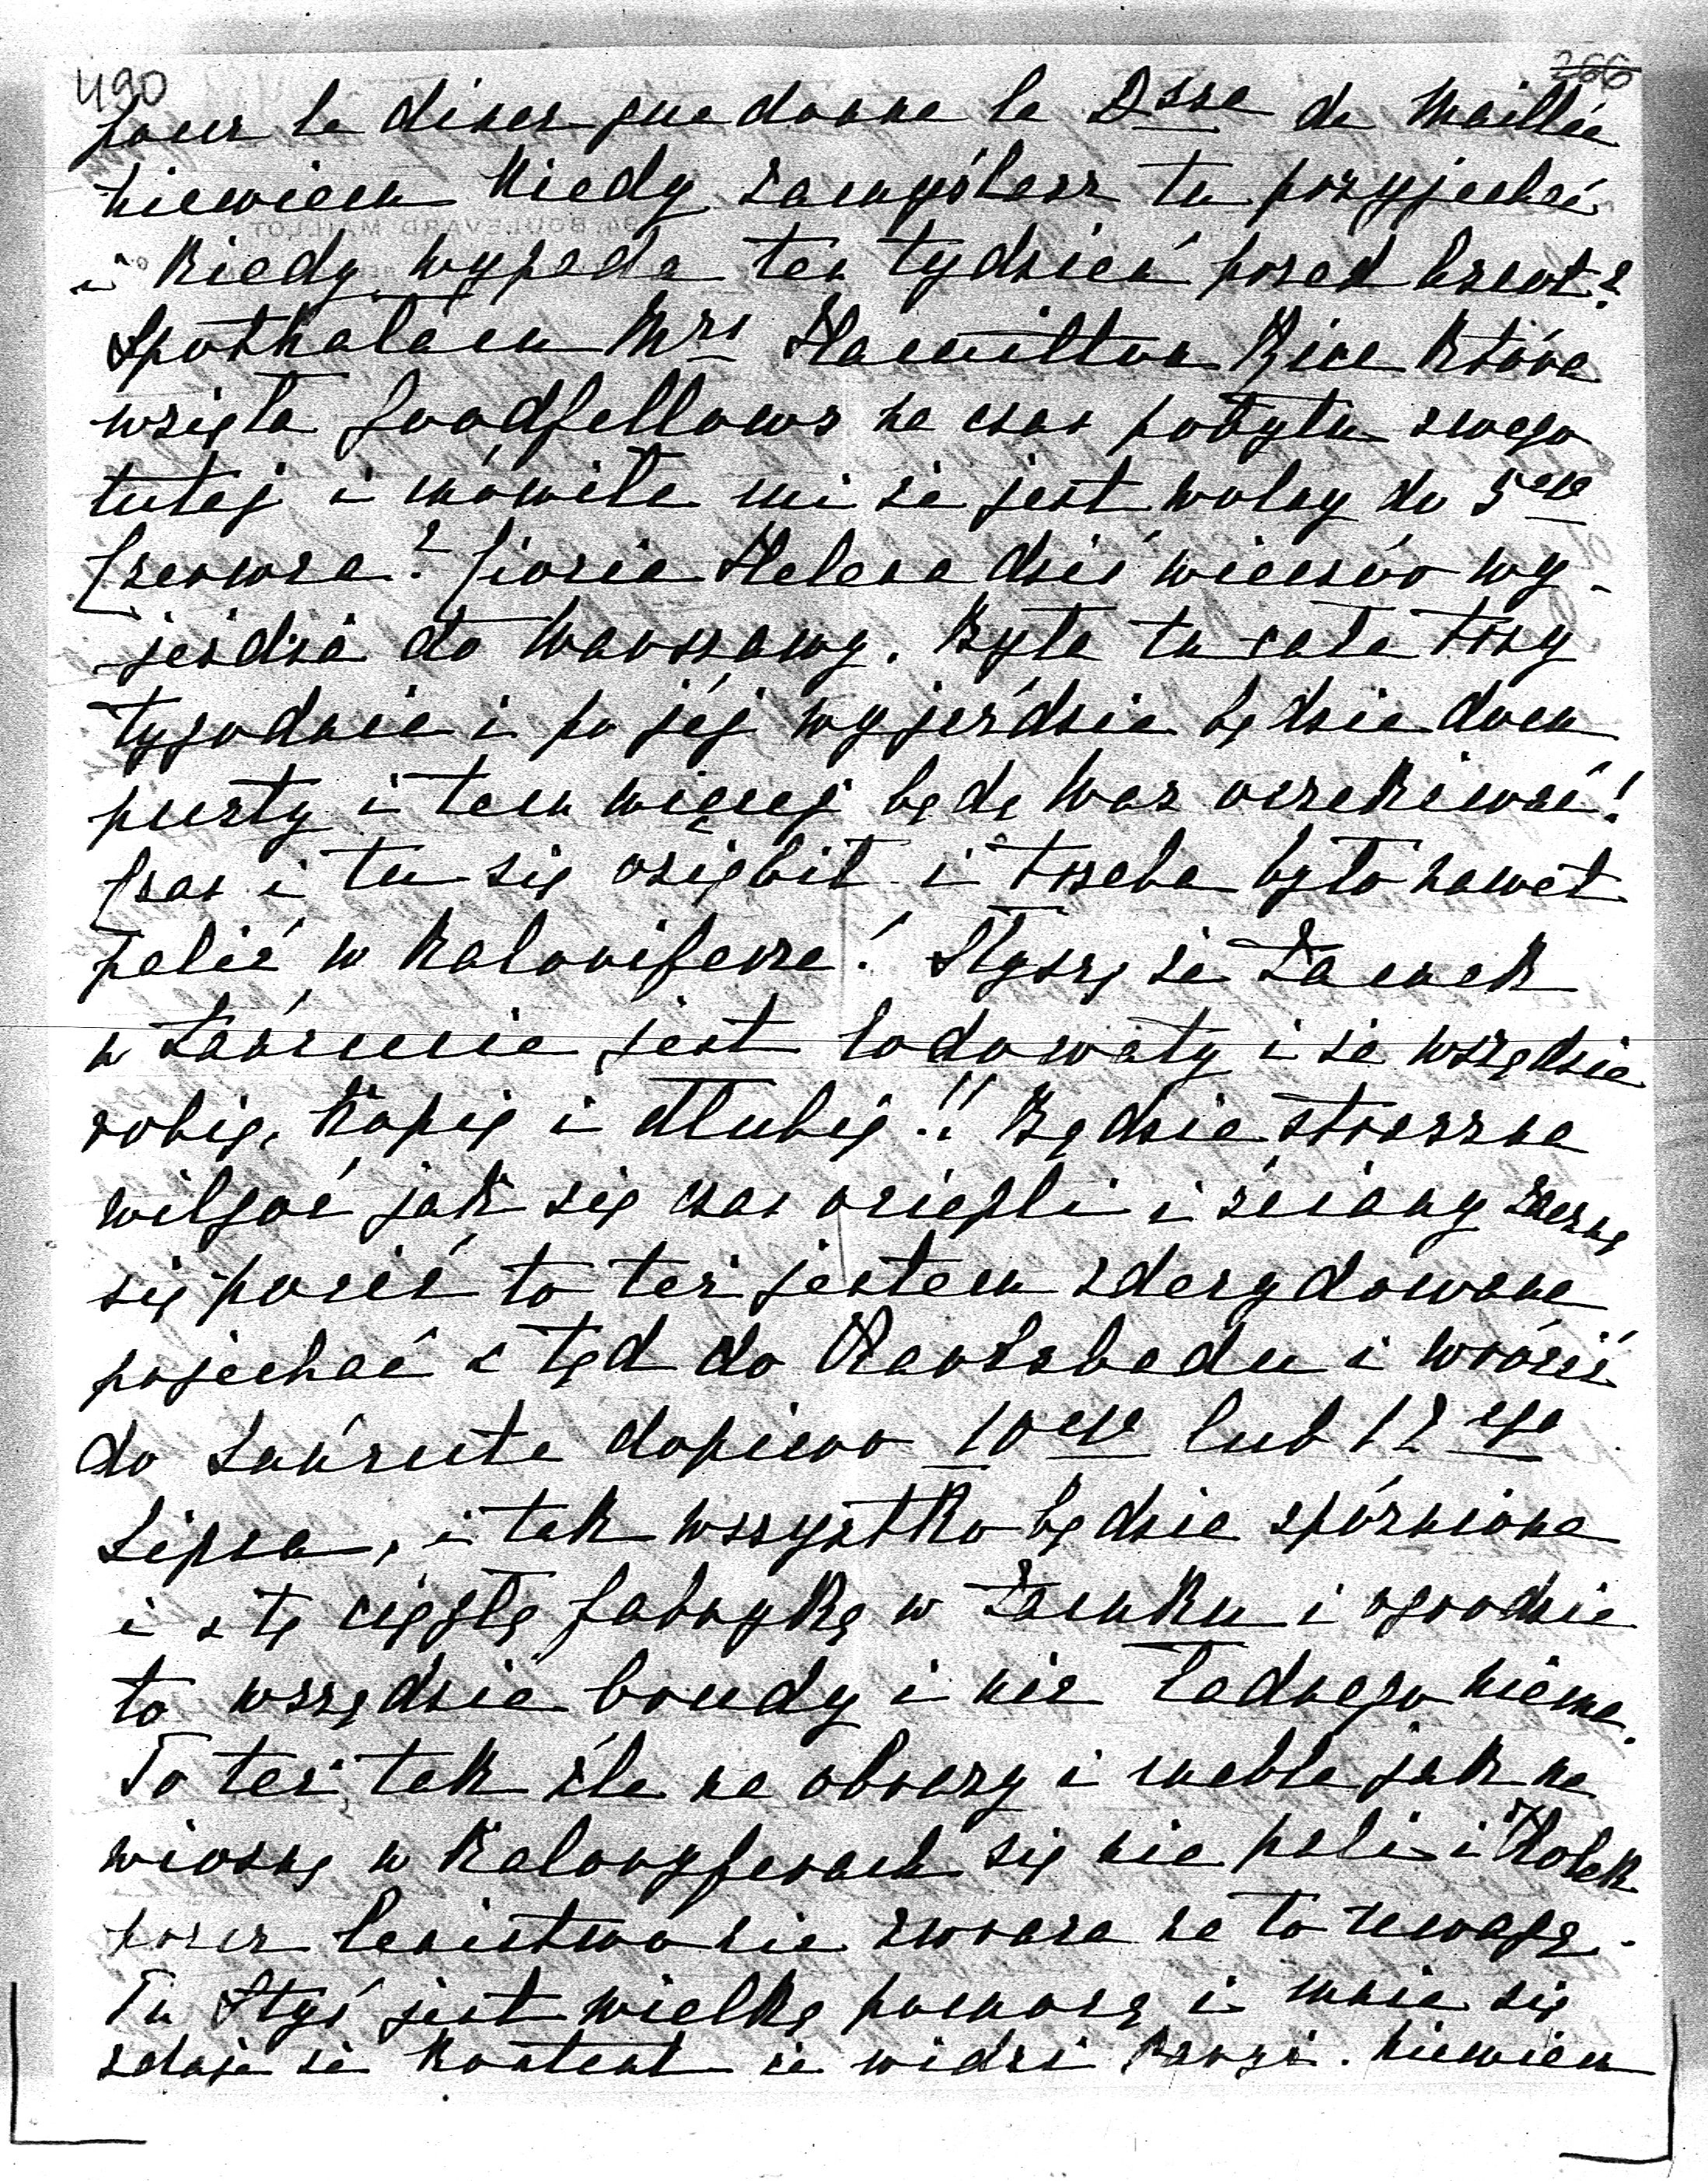 490
266
pour le diner que donne la Dsse de Maillée
niewiem kiedy zamyślasz tu przyjechać
i kiedy wypada ten tydzień przed krwt?
Spotkałam Mrs Hamilton Rice która
wzięła Goodfellows na czas pobytu swego
tutej i mówiła mi że jest wolny do 5ego
Czerwca? Ciocia Helena dziś wieczór wy-
jeżdża do Warszawy. Była tu całe trzy
tygodnie i po jéj wyjeździe będzie dom
pusty i tem więcej będę Was oczekiwać!
Czas i tu się oziębił i trzeba było nawet
palić w kalorifeże! Słyszę że Zamek
w Łańcucie jest lodowaty i że wszędzie
robią, kopią i dłubią!! Będzie straszna
wilgoć jak się czas ociepli i ściany zaczną
się pocić to też jestem zdecydowana
pojechać z tąd do Karlsbadu i wrócić
do Łańcuta dopiero 10ego lub 12ego
Lipca, i tak wszystko będzie spóźnione
i z tą ciągłą fabryką w Zamku i ogrodzie
to wszędzie brudy i nic ładnego niema.
To też tak źle na obrazy i meble jak na
wiosnę w kaloryferach się nie pali i
przez lenistwo nie zwraca na to uwagę.
Tu Styś jest wielką pomocą i mnie się
zdaje że kontent że widzi Paryż. Niewiem